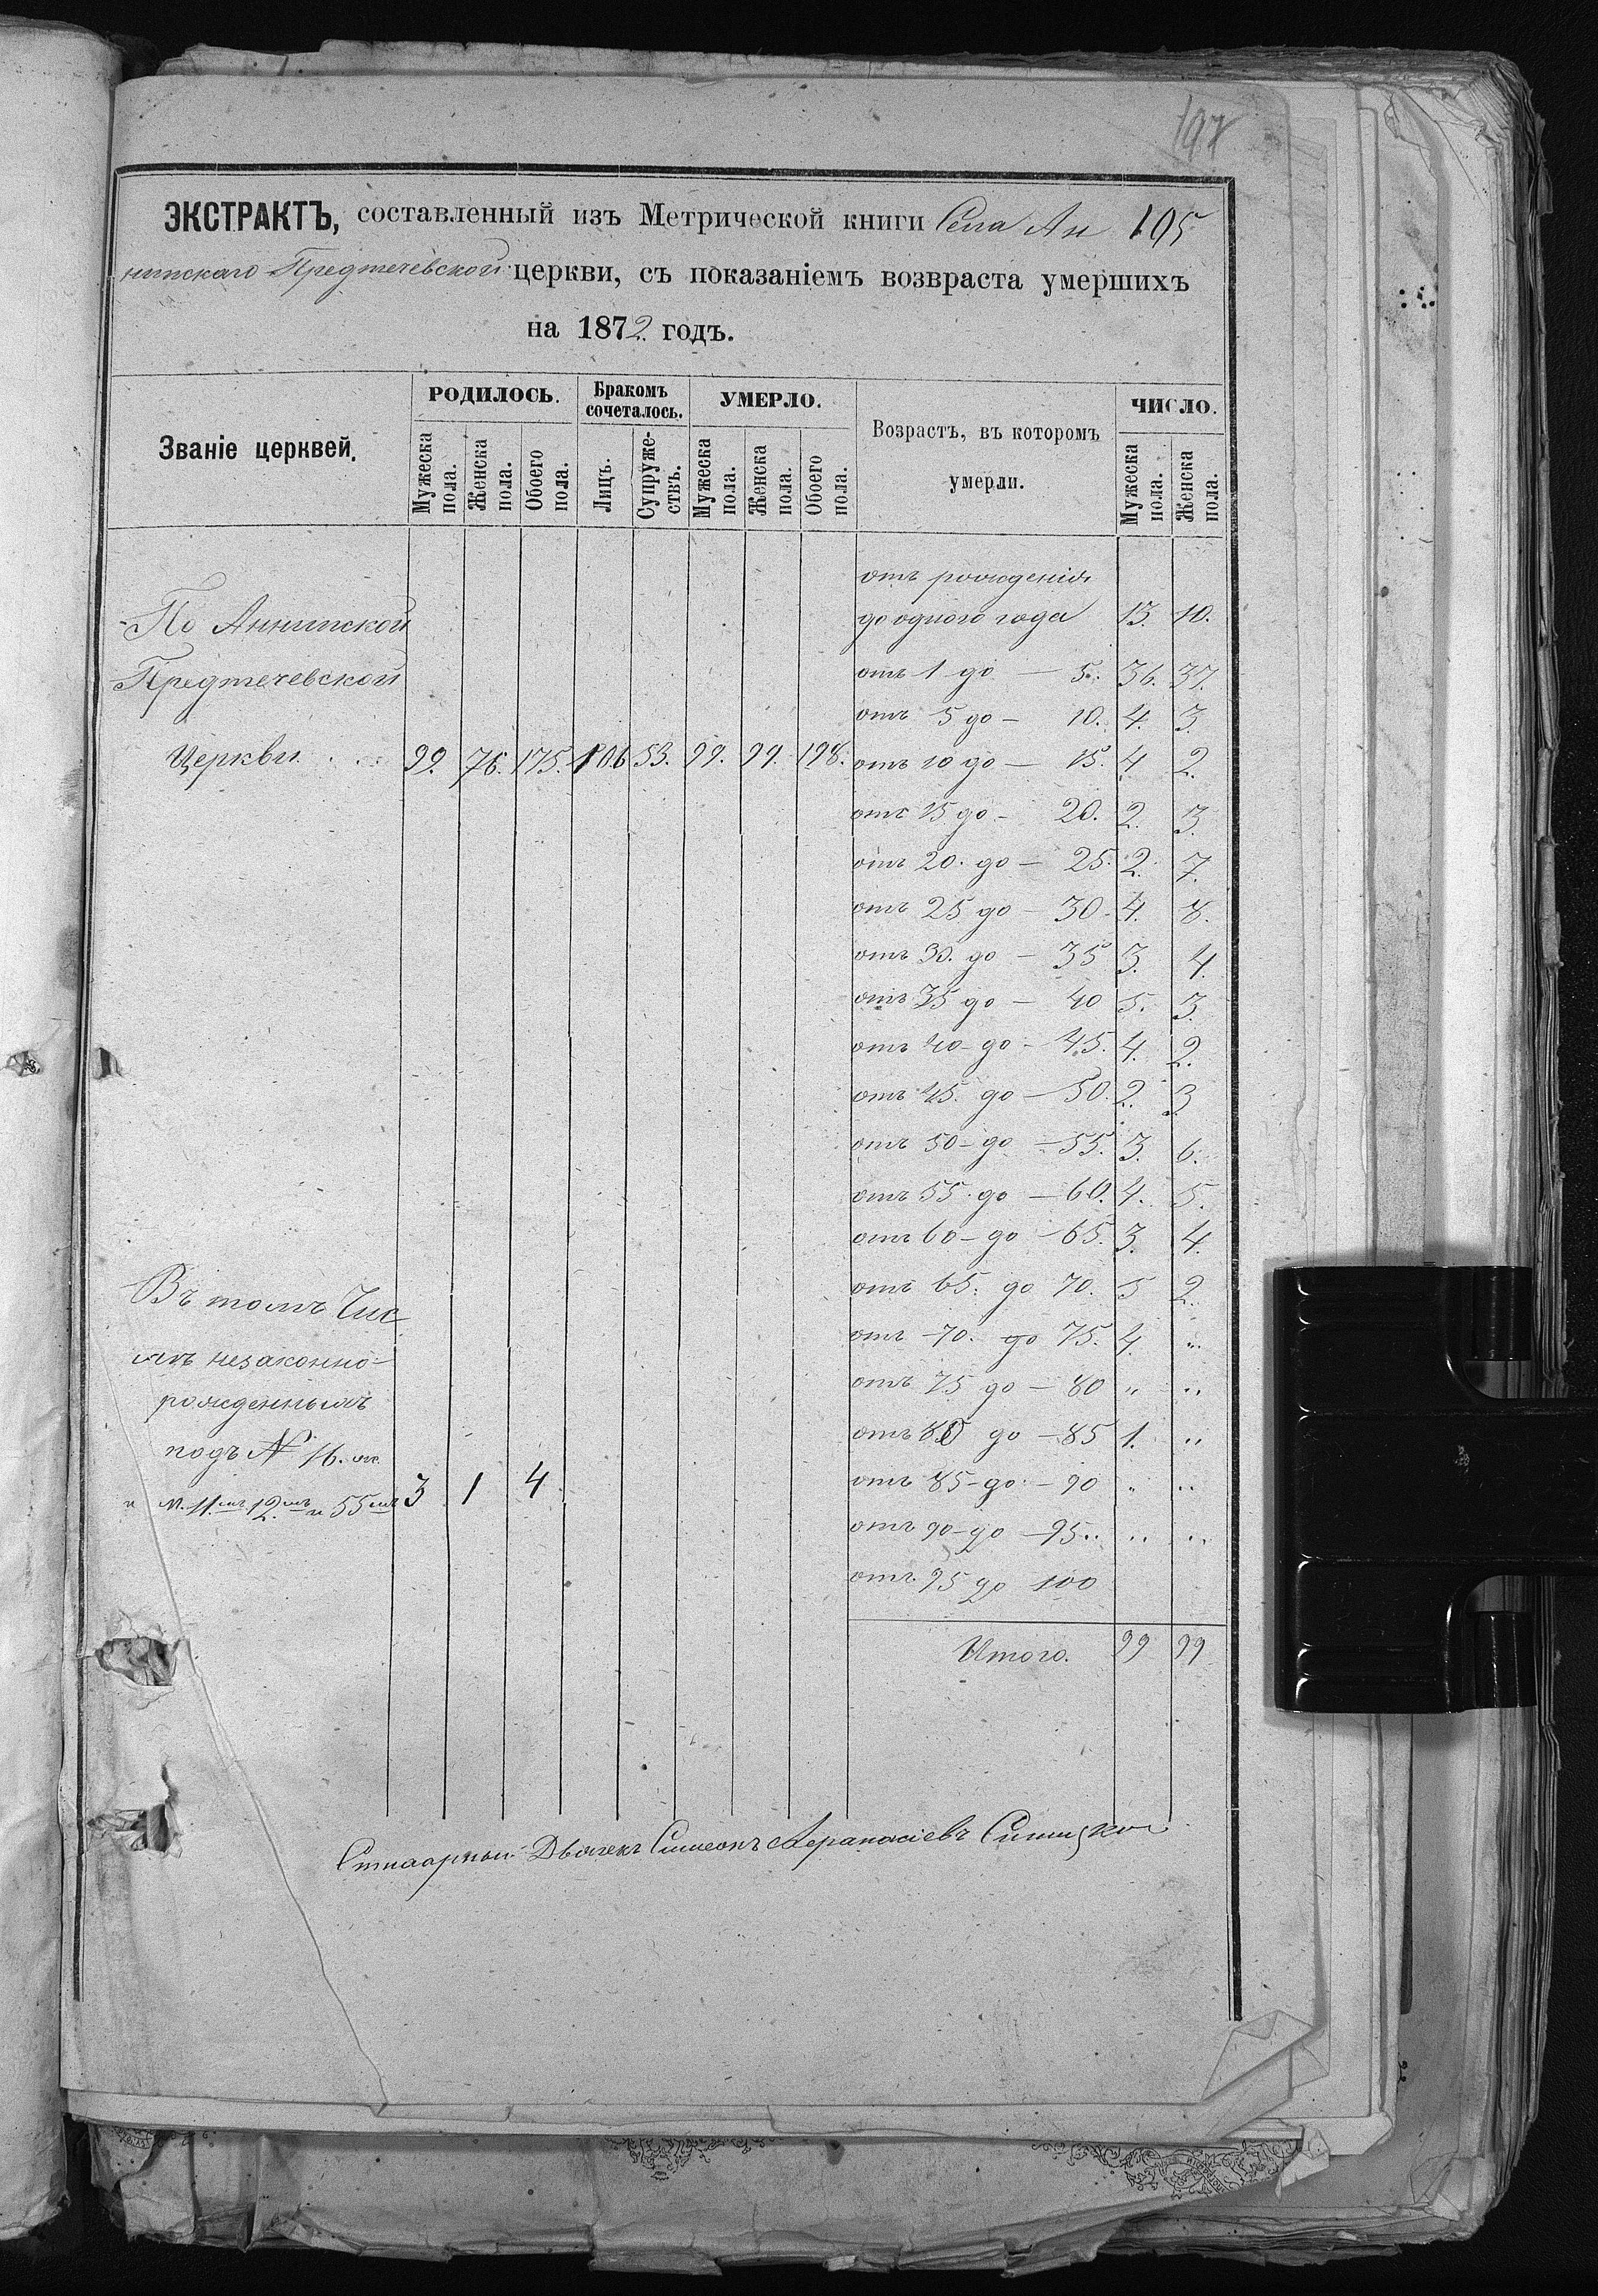 197
ЭКСТРАКТЪ, составленный изъ Метрической книги Села Ан 195
нинскаго Предтечевской церкви, съ показаніемъ возвраста умершихъ
на 1872 годъ.
Званіе церквей.
РОДИЛОСЬ.
Бракомъ сочеталось.
УМЕРЛО.
Возрастъ, въ которомъ умерли.
ЧИСЛО.
Мужеска пола.
Женска пола.
Обоего пола.
Лицъ.
Супруже-ствъ.
Мужеска пола.
Женска пола.
Обоего пола.
Мужеска пола.
Женска пола.
отъ рожденія
По Аннинской до одного года 13. 10.
Предтечевской отъ 1 до — 5. 36. 37.
отъ 5 до — 10. 4. 3.
Церкви. 99. 76. 175. 106 53. 99. 99. 198. отъ 10 до — 15. 4. 2.
отъ 15 до — 20. 2. 3.
отъ 20. до — 25. 2. 7.
отъ 25 до — 30. 4. 8.
отъ 30. до — 35 3. 4.
отъ 35 до — 40 5. 3.
отъ 40 — до — 45. 4. 2.
отъ 45. до — 50. 2. 3
отъ 50 — до — 55. 3. 6.
отъ 55. до — 60. 4. 5.
отъ 60 — до — 65. 3. 4.
Въ томъ Чис отъ 65. до 70. 5 2.
лѣ незаконно- отъ 70. до 75. 4. "
рожденныхъ отъ 75 до — 80 " "
подъ № 16. отъ 80 до — 85 1. "
м. 11. 12. и 55 3 1 4 отъ 85 — до — 90 " "
отъ 90 — до — 95.. " "
отъ 95 до 100
Итого. 99 99
Дьячекъ Симеонъ